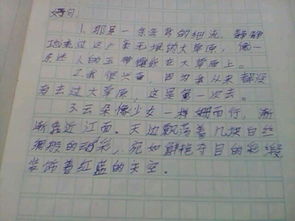 好句:
1.那是一条弯弯的相流,静静
地流过这广袤无垠的大草原,像一
条迷人的玉带镶嵌在大草原上。
2.我很兴奋,因为我从来都没
有去过大草原,这是第一次去。
3.云朵像少女一样姗姗而行,渐
渐靠近江面。天边飘荡着几块白丝
绸般的动彩,宛如鲜艳夺目的彩缎
装饰着红蓝的天空。